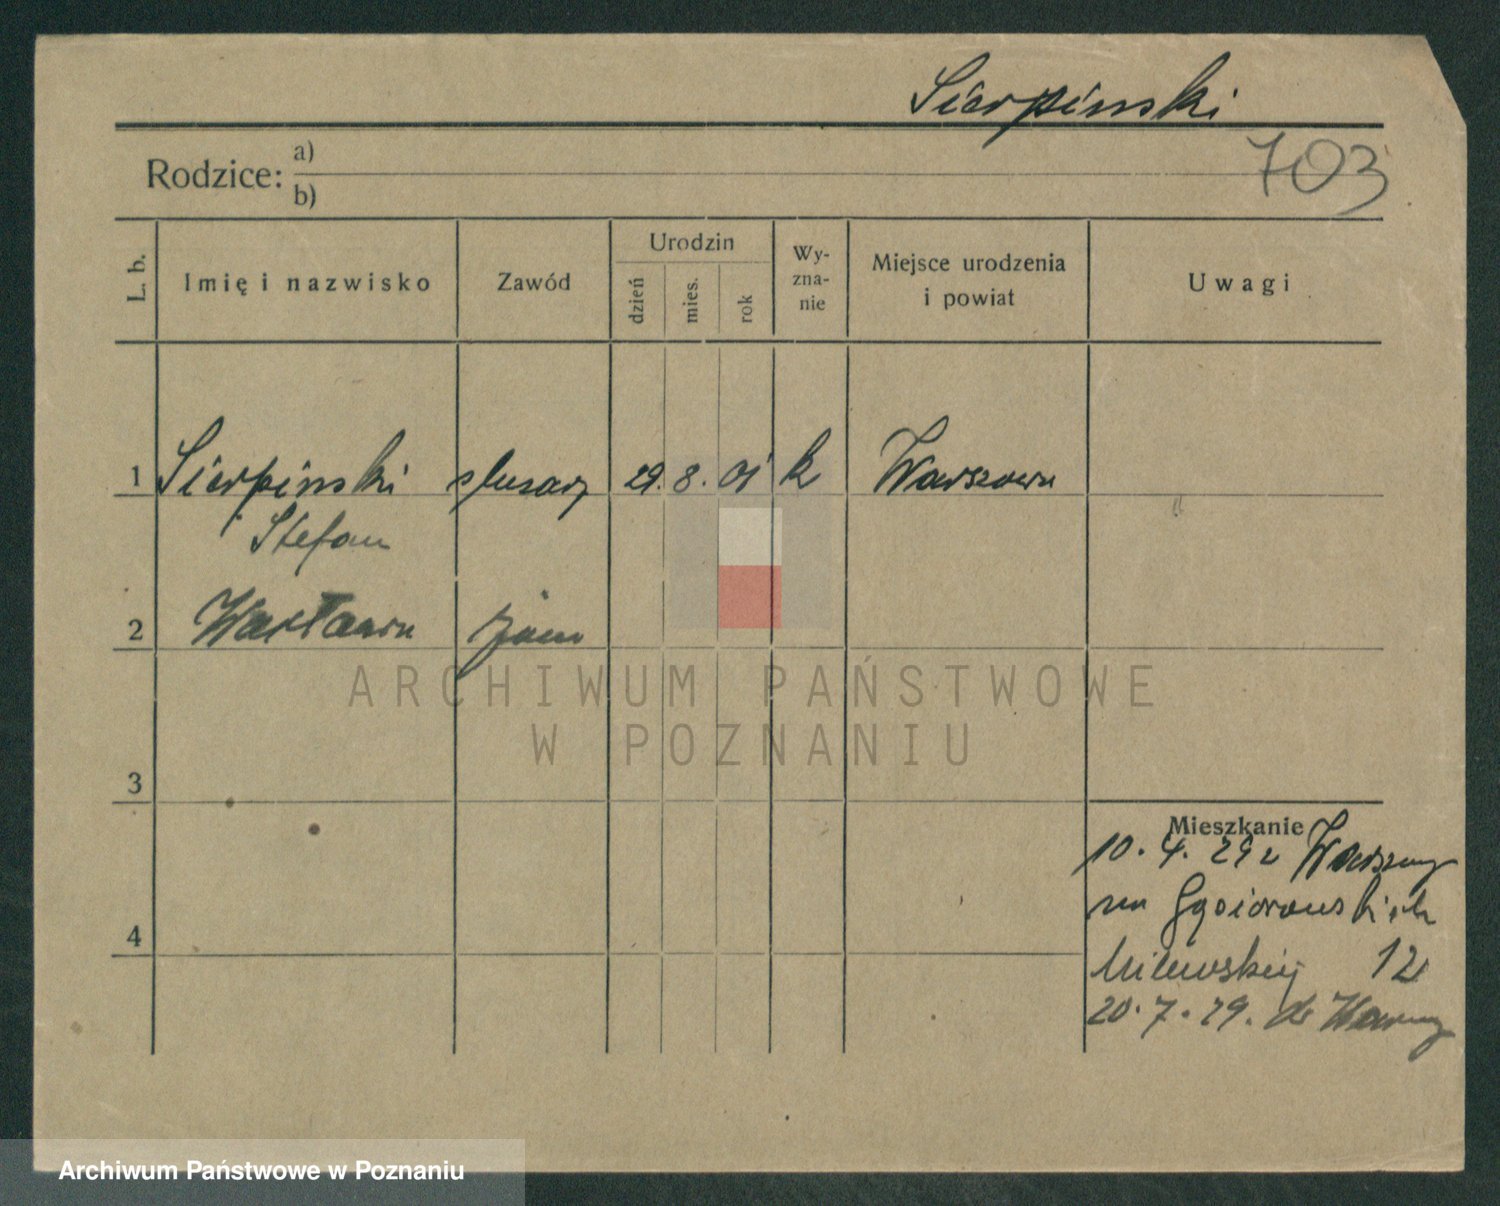 Sierpinski
703
Rodzice: a)
b)
L. b.
Imię i nazwisko
Zawód
Urodzin
dzień
mies.
rok
Wy-
zna-
nie
Miejsce urodzenia
i powiat
Uwagi
1 Sierpinski ślusarz 29. 8. 01 k Warszawa
Stefan
2 Wacława żona
3
4
Mieszkanie
10. 4. 29 z Warszawy
na Gąsiorowskich
12
20. 7. 29. do
ARCHIWUM PAŃSTWOWE
W POZNANIU
Archiwum Państwowe w Poznaniu